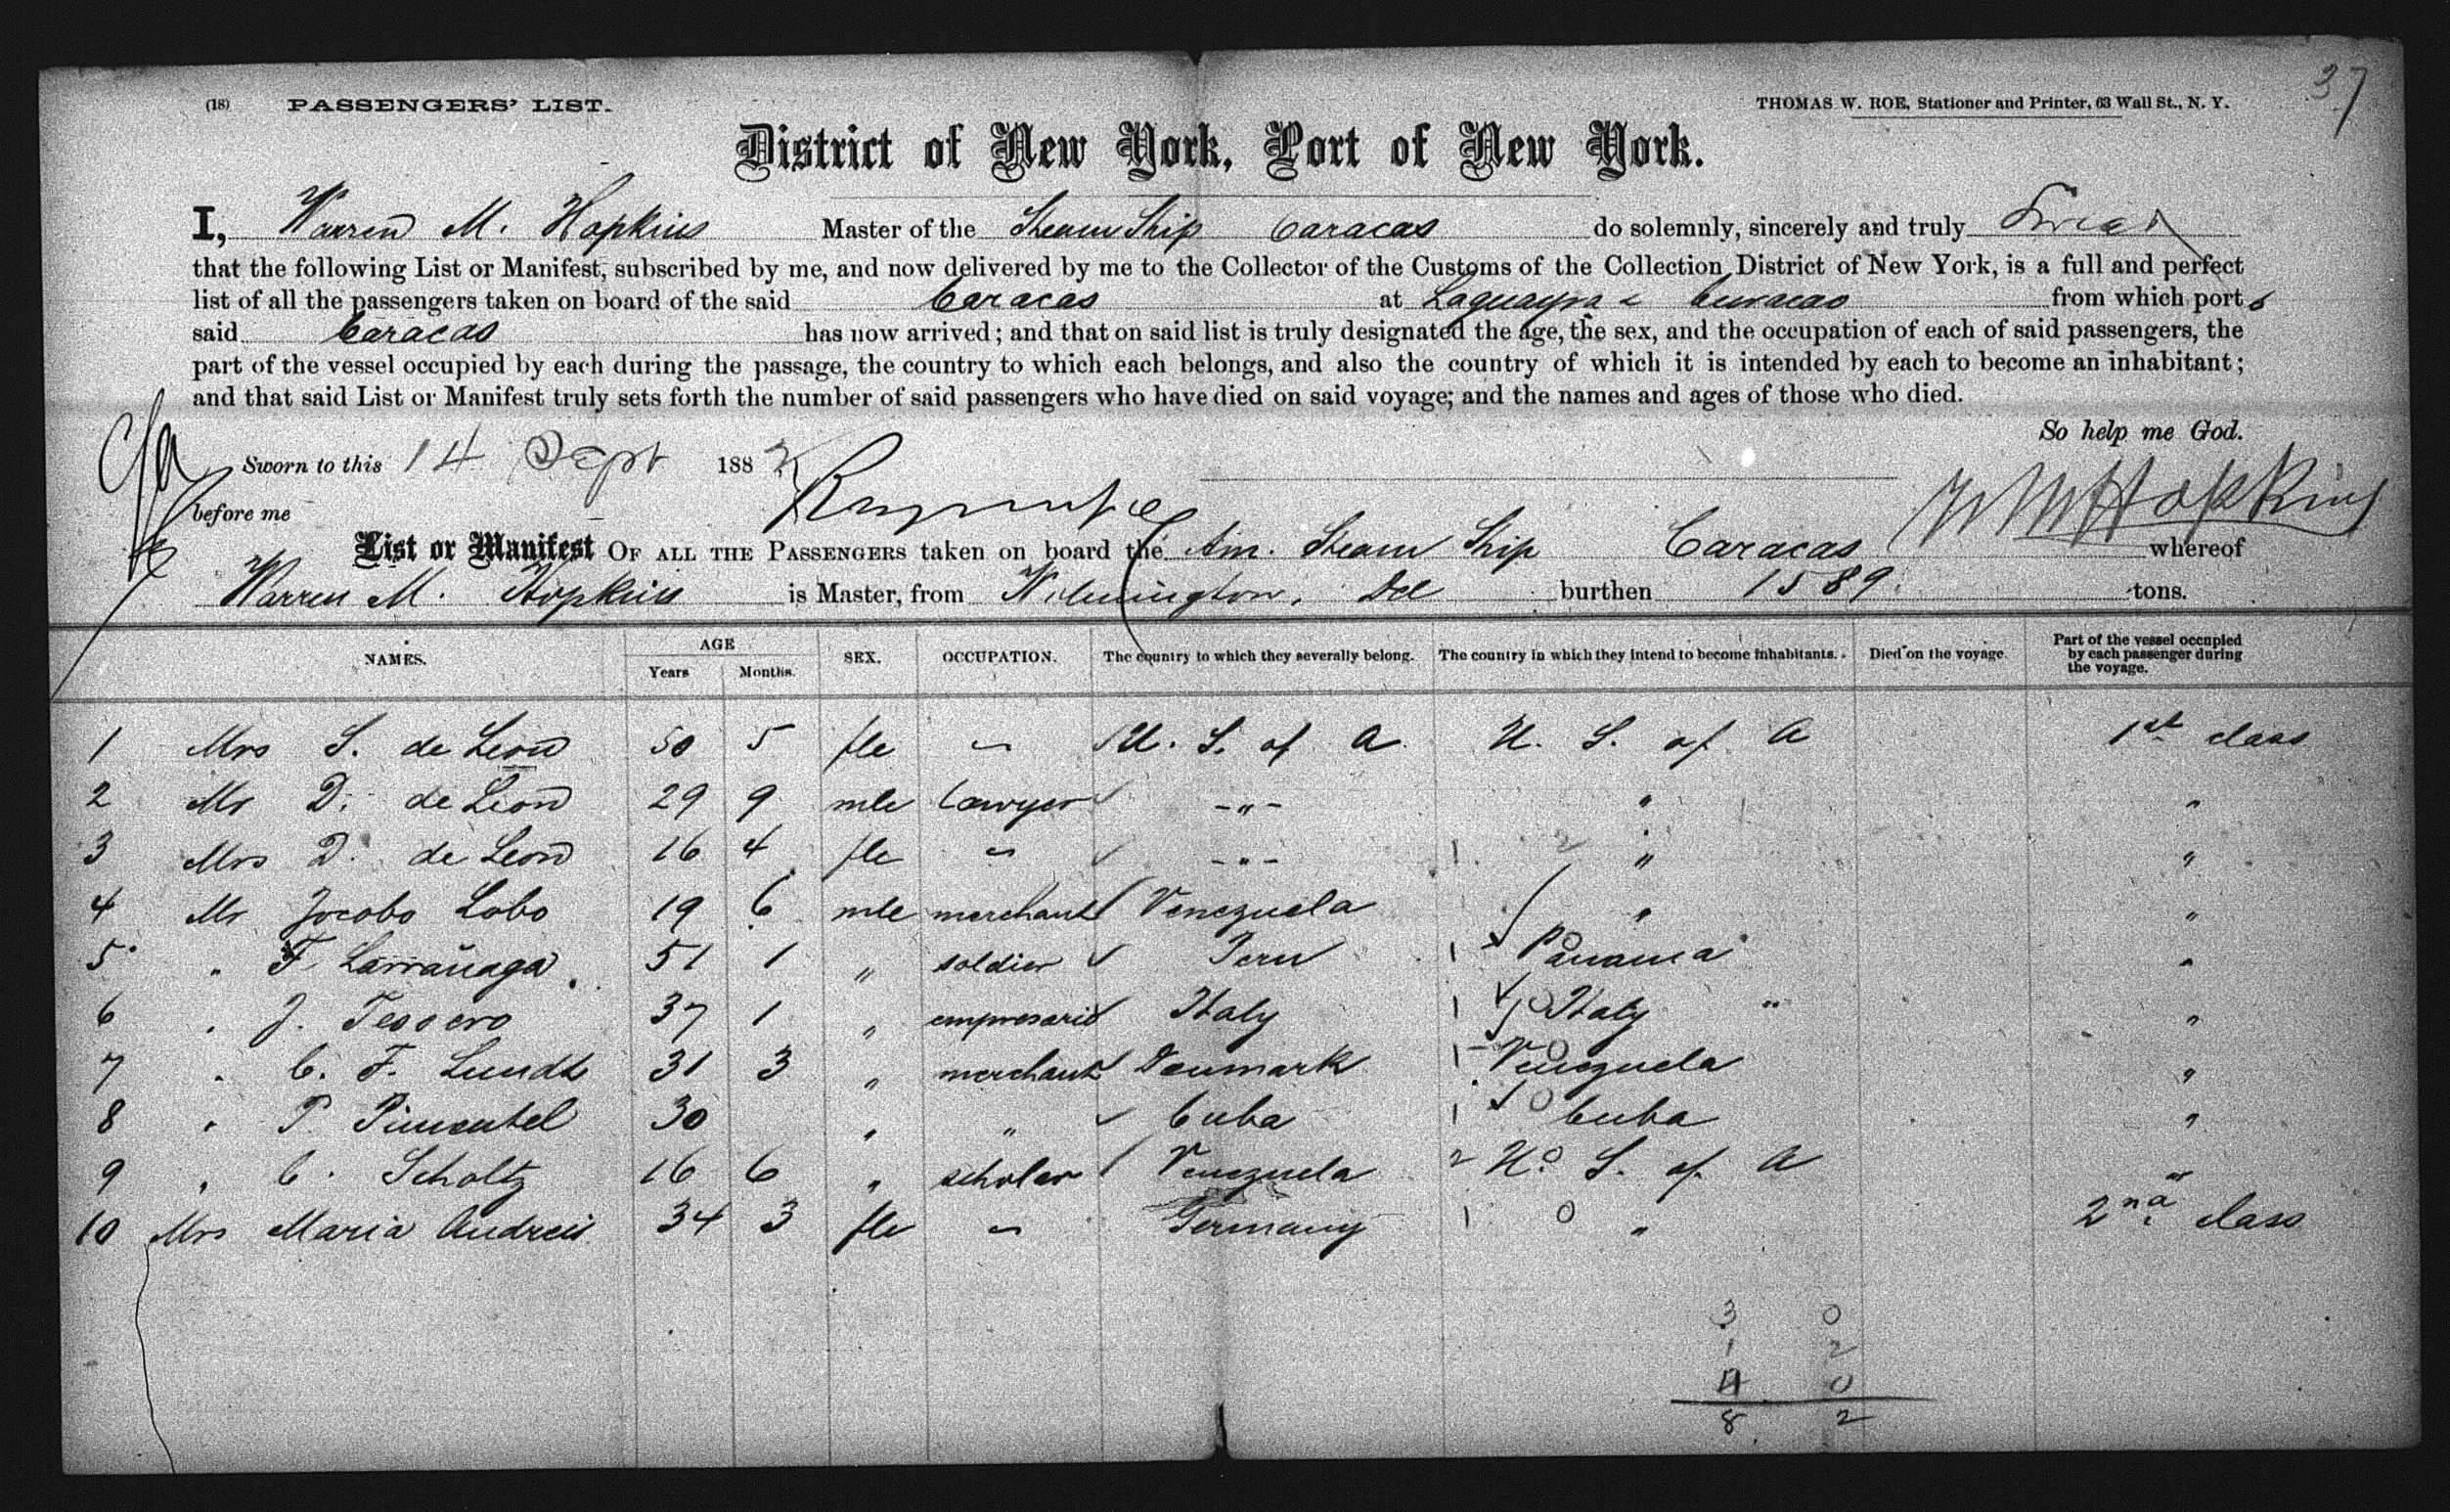 37
(18) PASSENGERS' LIST. THOMAS W. ROE, Stationer and Printer, 63 Wall St., N. Y.
District of New York, Port of New York.
I, Warren M. Hopkins Master of the Steam Ship Caracas do solemnly, sincerely and truly Swear
that the following List or Manifest, subscribed by me, and now delivered by me to the Collector of the Customs of the Collection District of New York, is a full and perfect
list of all the passengers taken on board of the said Caracas at Laguayra & Curacao from which ports
said Caracas has now arrived; and that on said list is truly designated the age, the sex, and the occupation of each of said passengers, the
part of the vessel occupied by each during the passage, the country to which each belongs, and also the country of which it is intended by each to become an inhabitant;
and that said List or Manifest truly sets forth the number of said passengers who have died on said voyage; and the names and ages of those who died.
So help me God.
Sworn to this 14 Sept 1882
before me
W M Hopkins
List or Manifest OF ALL THE PASSENGERS taken on board the Am. Steam Ship Caracas whereof
Warren M. Hopkins is Master, from Wilmington, Del burthen 1589 tons.
NAMES. AGE Years Months. SEX. OCCUPATION. The country to which they severally belong. The country in which they intend to become inhabitants. Died on the voyage. Part of the vessel occupied by each passenger during the voyage.
1 Mrs S. de Leon 50 5 fle " U. S. of A. U. S. of A 1st class
2 Mr D. de Leon 29 9 mle Lawyer -"- " "
3 Mrs D. de Leon 16 4 fle " -"- 1 2 " "
4 Mr Jocobo Lobo 19 6 mle merchant Venezuela " "
5 " F. Larrañaga 51 1 " soldier Peru 1 Panama "
6 " J. Tessero 37 1 " empresario Italy 1 0 Italy " "
7 " C. F. Lundt 31 3 " merchant Denmark 1 0 Venezuela "
8 " P. Pimentel 30 " " Cuba 1 0 Cuba "
9 " C. Scholtz 16 6 " scholar Venezuela 2 0 U. S. of A "
10 Mrs Maria Andreis 34 3 fle " Germany 1 0 " 2nd class
3 0
1 2
4 0
8 2